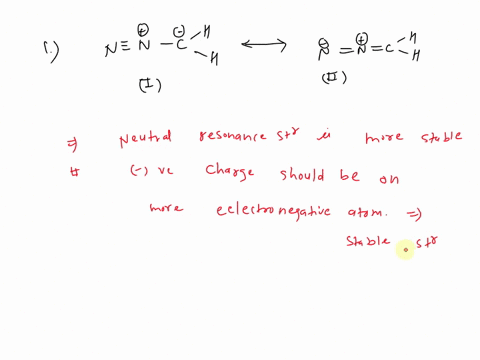 1.) N≡N⊕–C⊖ H H ⟷ N⊖=N⊕=C H H
(I) (II)
⇒ Neutral resonance strr is more stable
# (-) ve charge should be on
more eclectronegative atom. ⇒
stable strr